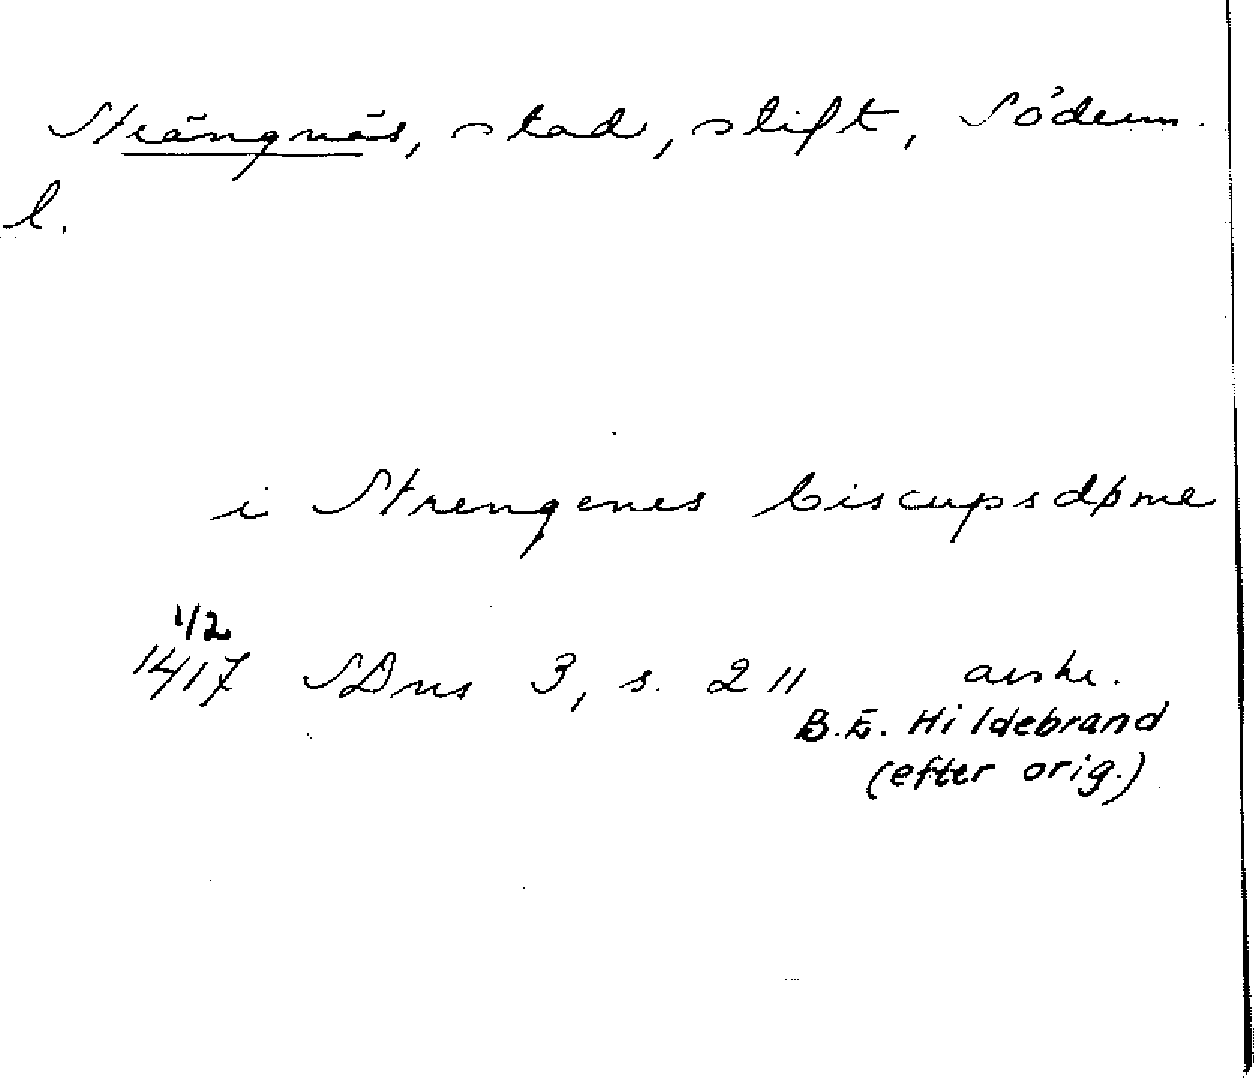 Strängnäs, stad, stift, Söderm.
l.
i Strengenes biscupsdøme
1/2
1417 SDns 3, s. 211 avskr.
B.E. Hildebrand
(efter orig.)